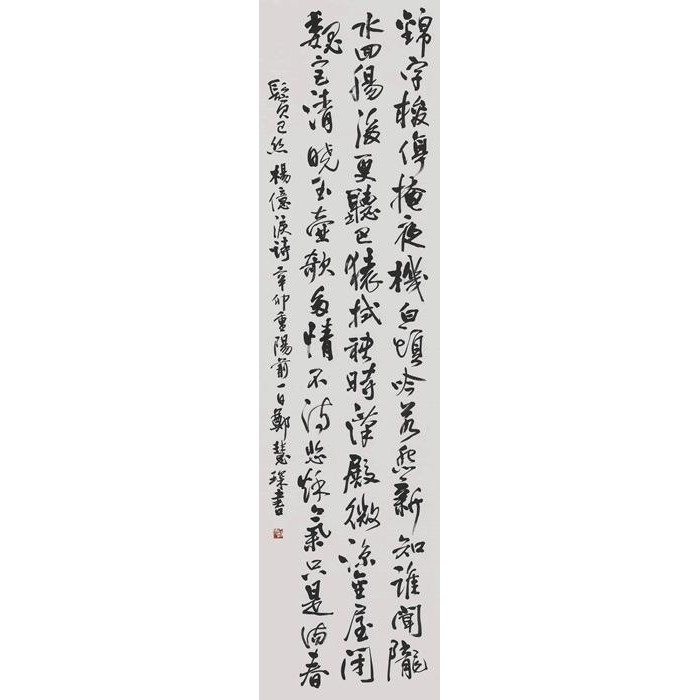 錦字梭停掩夜機白頭吟苦怨新知誰聞隴
水回腸後更聽巴猿拭袂時漢殿微涼金屋閉
魏宮清曉玉壺欹多情不待悲秋氣只是傷春
鬢已絲 楊億淚詩 辛卯重陽前一日鄭慧琛書